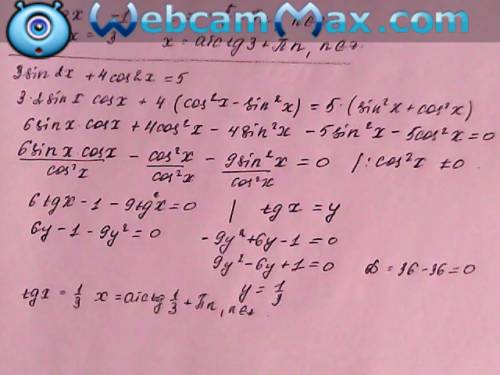 WebcamMax.com
x = arctg 3 + πn, n∈z.
3 sin 2x + 4cos 2x = 5
3·2 sin x cosx + 4 (cos²x - sin²x) = 5·(sin²x + cos²x)
6 sin x·cosx + 4cos²x - 4 sin²x - 5 sin²x - 5cos²x = 0
6 sin x cosx / cos²x - cos²x / cos²x - 9 sin²x / cos²x = 0 /: cos²x ≠ 0
6 tgx - 1 - 9tg²x = 0 | tgx = y
6y - 1 - 9y² = 0 -9y² + 6y - 1 = 0
9y² - 6y + 1 = 0 D = 36 - 36 = 0
tgx = 1/3 x = arctg 1/3 + πn, n∈z. y = 1/3